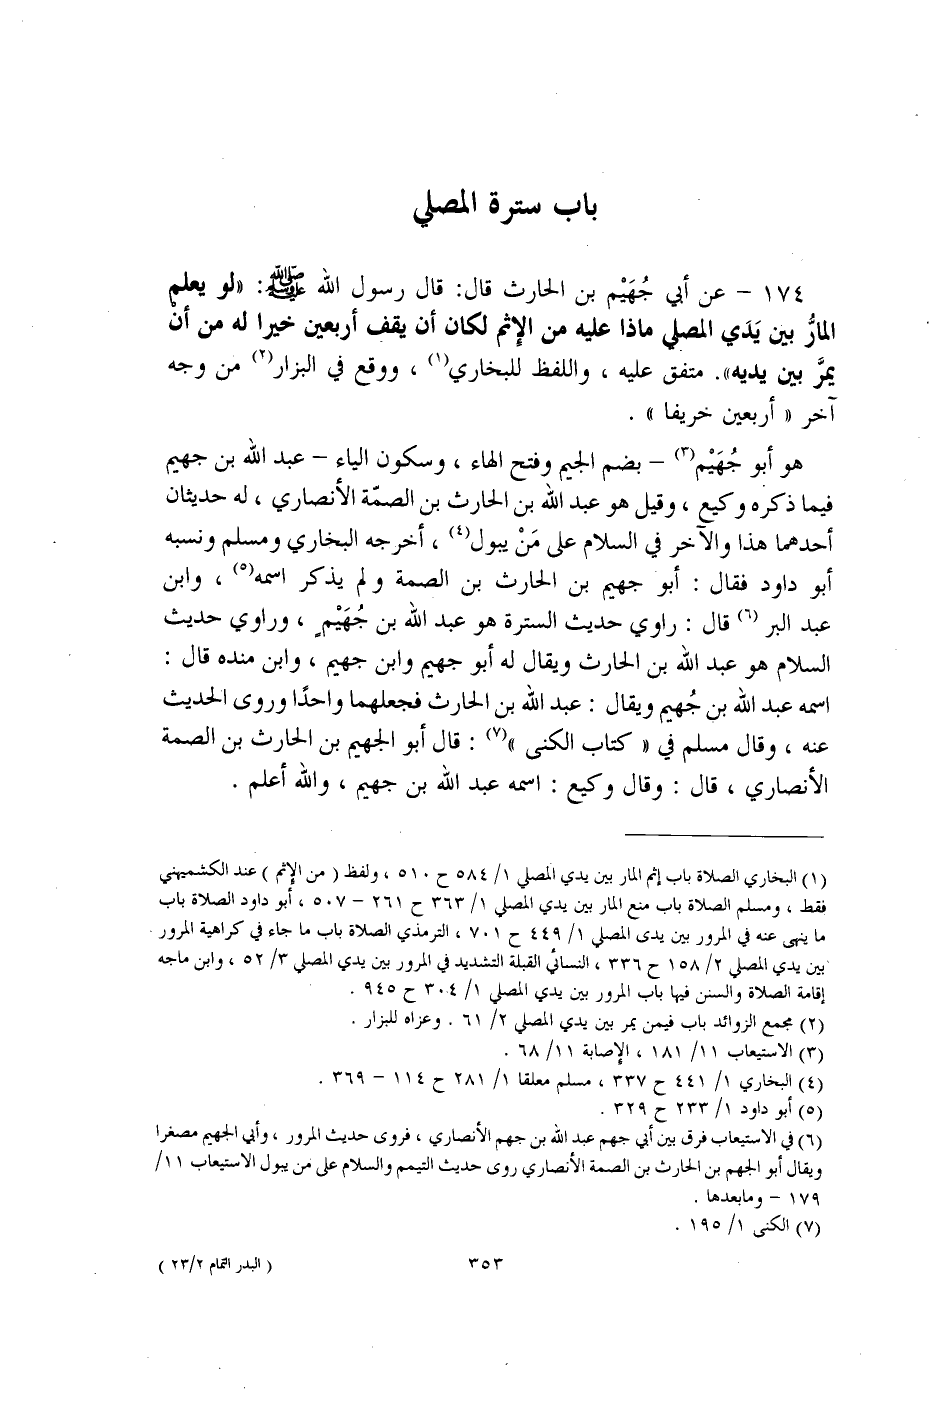 باب سترة المصلي
١٧٤ – عن أبي جُهَيْم بن الحارث قال: قال رسول الله ﷺ: «لو يعلم
المارُّ بين يَدَي المصلي ماذا عليه من الإثم لكان أن يقف أربعين خيرا له من أنْ
يمرَّ بين يديه». متفق عليه ، واللفظ للبخاري(١) ، ووقع في البزار(٢) من وجه
آخر « أربعين خريفا » .
هو أبو جُهَيْم(٣) – بضم الجيم وفتح الهاء ، وسكون الياء – عبد الله بن جهيم
فيما ذكره وكيع ، وقيل هو عبد الله بن الحارث بن الصمّة الأنصاري ، له حديثان
أحدهما هذا والآخر في السلام على مَنْ يبول(٤) ، أخرجه البخاري ومسلم ونسبه
أبو داود فقال : أبو جهيم بن الحارث بن الصمة ولم يذكر اسمه(٥) ، وابن
عبد البر(٦) قال : راوي حديث السترة هو عبد الله بن جُهَيْمٍ ، وراوي حديث
السلام هو عبد الله بن الحارث ويقال له أبو جهيم وابن جهيم ، وابن منده قال :
اسمه عبد الله بن جُهيم ويقال : عبد الله بن الحارث فجعلهما واحدًا وروى الحديث
عنه ، وقال مسلم في « كتاب الكنى »(٧) : قال أبو الجهيم بن الحارث بن الصمة
الأنصاري ، قال : وقال وكيع : اسمه عبد الله بن جهيم ، والله أعلم .
(١) البخاري الصلاة باب إثم المار بين يدي المصلي ١/ ٥٨٤ ح ٥١٠ ، ولفظ ( من الإثم ) عند الكشميهني
فقط ، ومسلم الصلاة باب منع المار بين يدي المصلي ١/ ٣٦٣ ح ٢٦١ – ٥٠٧ ، أبو داود الصلاة باب
ما ينهى عنه في المرور بين يدى المصلي ١/ ٤٤٩ ح ٧٠١ ، الترمذي الصلاة باب ما جاء في كراهية المرور
بين يدي المصلي ٢/ ١٥٨ ح ٣٣٦ ، النسائي القبلة التشديد في المرور بين يدي المصلي ٣/ ٥٢ ، وابن ماجه
إقامة الصلاة والسنن فيها باب المرور بين يدي المصلي ١/ ٣٠٤ ح ٩٤٥ .
(٢) مجمع الزوائد باب فيمن يمر بين يدي المصلي ٢/ ٦١ . وعزاه للبزار .
(٣) الاستيعاب ١١/ ١٨١ ، الإصابة ١١/ ٦٨ .
(٤) البخاري ١/ ٤٤١ ح ٣٣٧ ، مسلم معلقا ١/ ٢٨١ ح ١١٤ – ٣٦٩ .
(٥) أبو داود ١/ ٢٣٣ ح ٣٢٩ .
(٦) في الاستيعاب فرق بين أبي جهم عبد الله بن جهم الأنصاري ، فروى حديث المرور ، وأبي الجهيم مصغرا
ويقال أبو الجهم بن الحارث بن الصمة الأنصاري روى حديث التيمم والسلام على من يبول الاستيعاب ١١/
١٧٩ – ومابعدها .
(٧) الكنى ١/ ١٩٥ .
٣٥٣
( البدر التمام ٢٣/٢ )